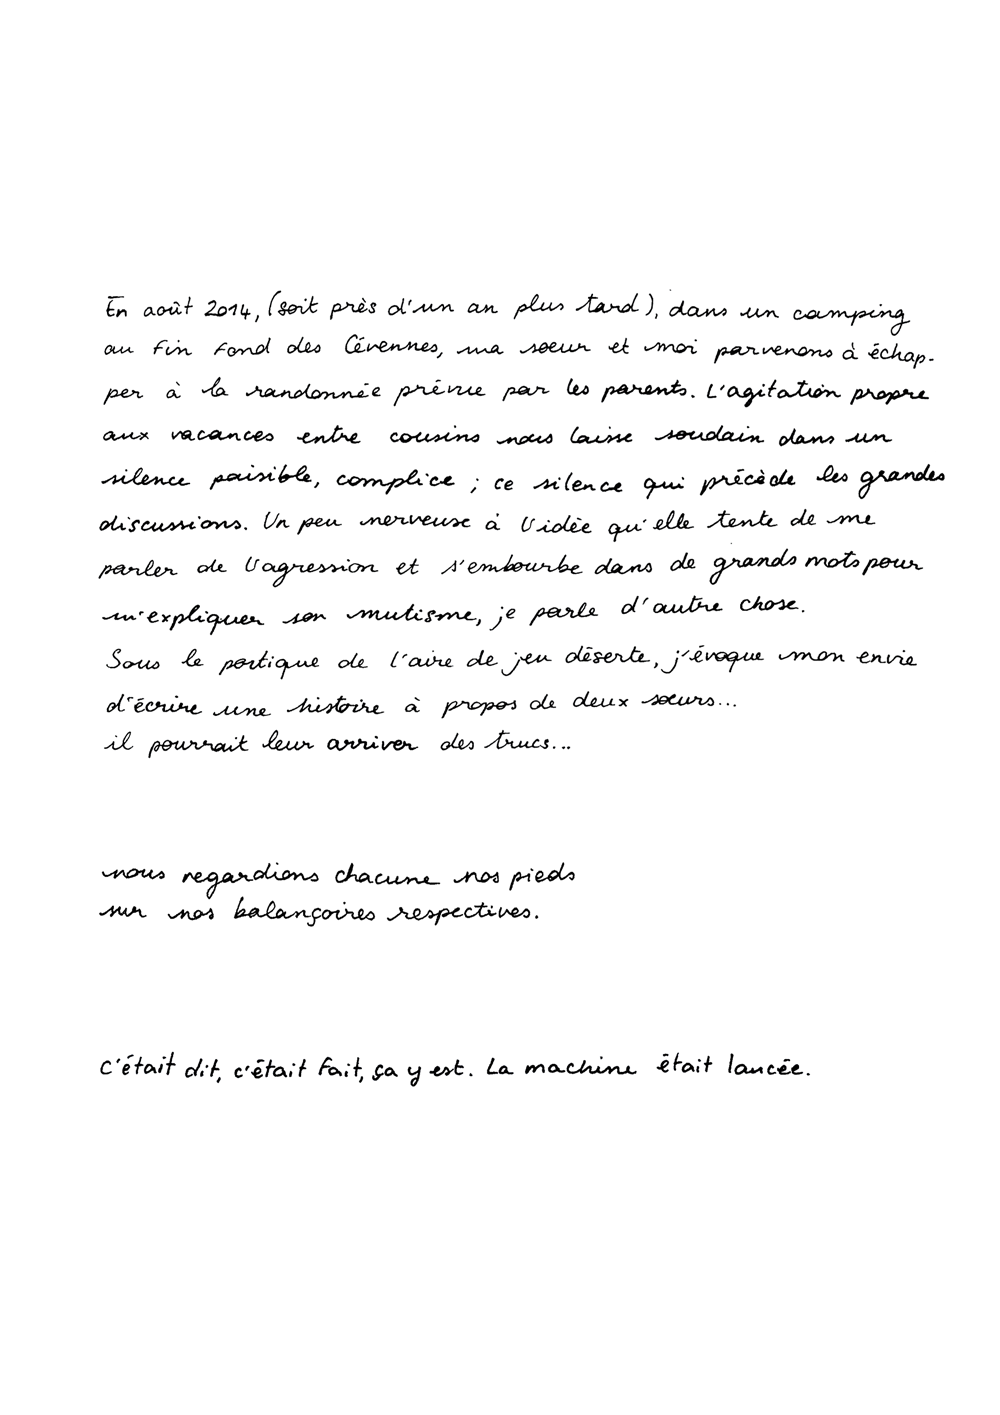 En août 2014, (soit près d'un an plus tard), dans un camping
au fin fond des Cévennes, ma sœur et moi parvenons à échap-
per à la randonnée prévue par les parents. L'agitation propre
aux vacances entre cousins nous laisse soudain dans un
silence paisible, complice ; ce silence qui précède les grandes
discussions. Un peu nerveuse à l'idée qu'elle tente de me
parler de l'agression et s'embourbe dans de grands mots pour
m'expliquer son mutisme, je parle d'autre chose.
Sous le portique de l'aire de jeu déserte, j'évoque mon envie
d'écrire une histoire à propos de deux sœurs...
il pourrait leur arriver des trucs...
nous regardions chacune nos pieds
sur nos balançoires respectives.
c'était dit, c'était fait, ça y est. La machine était lancée.